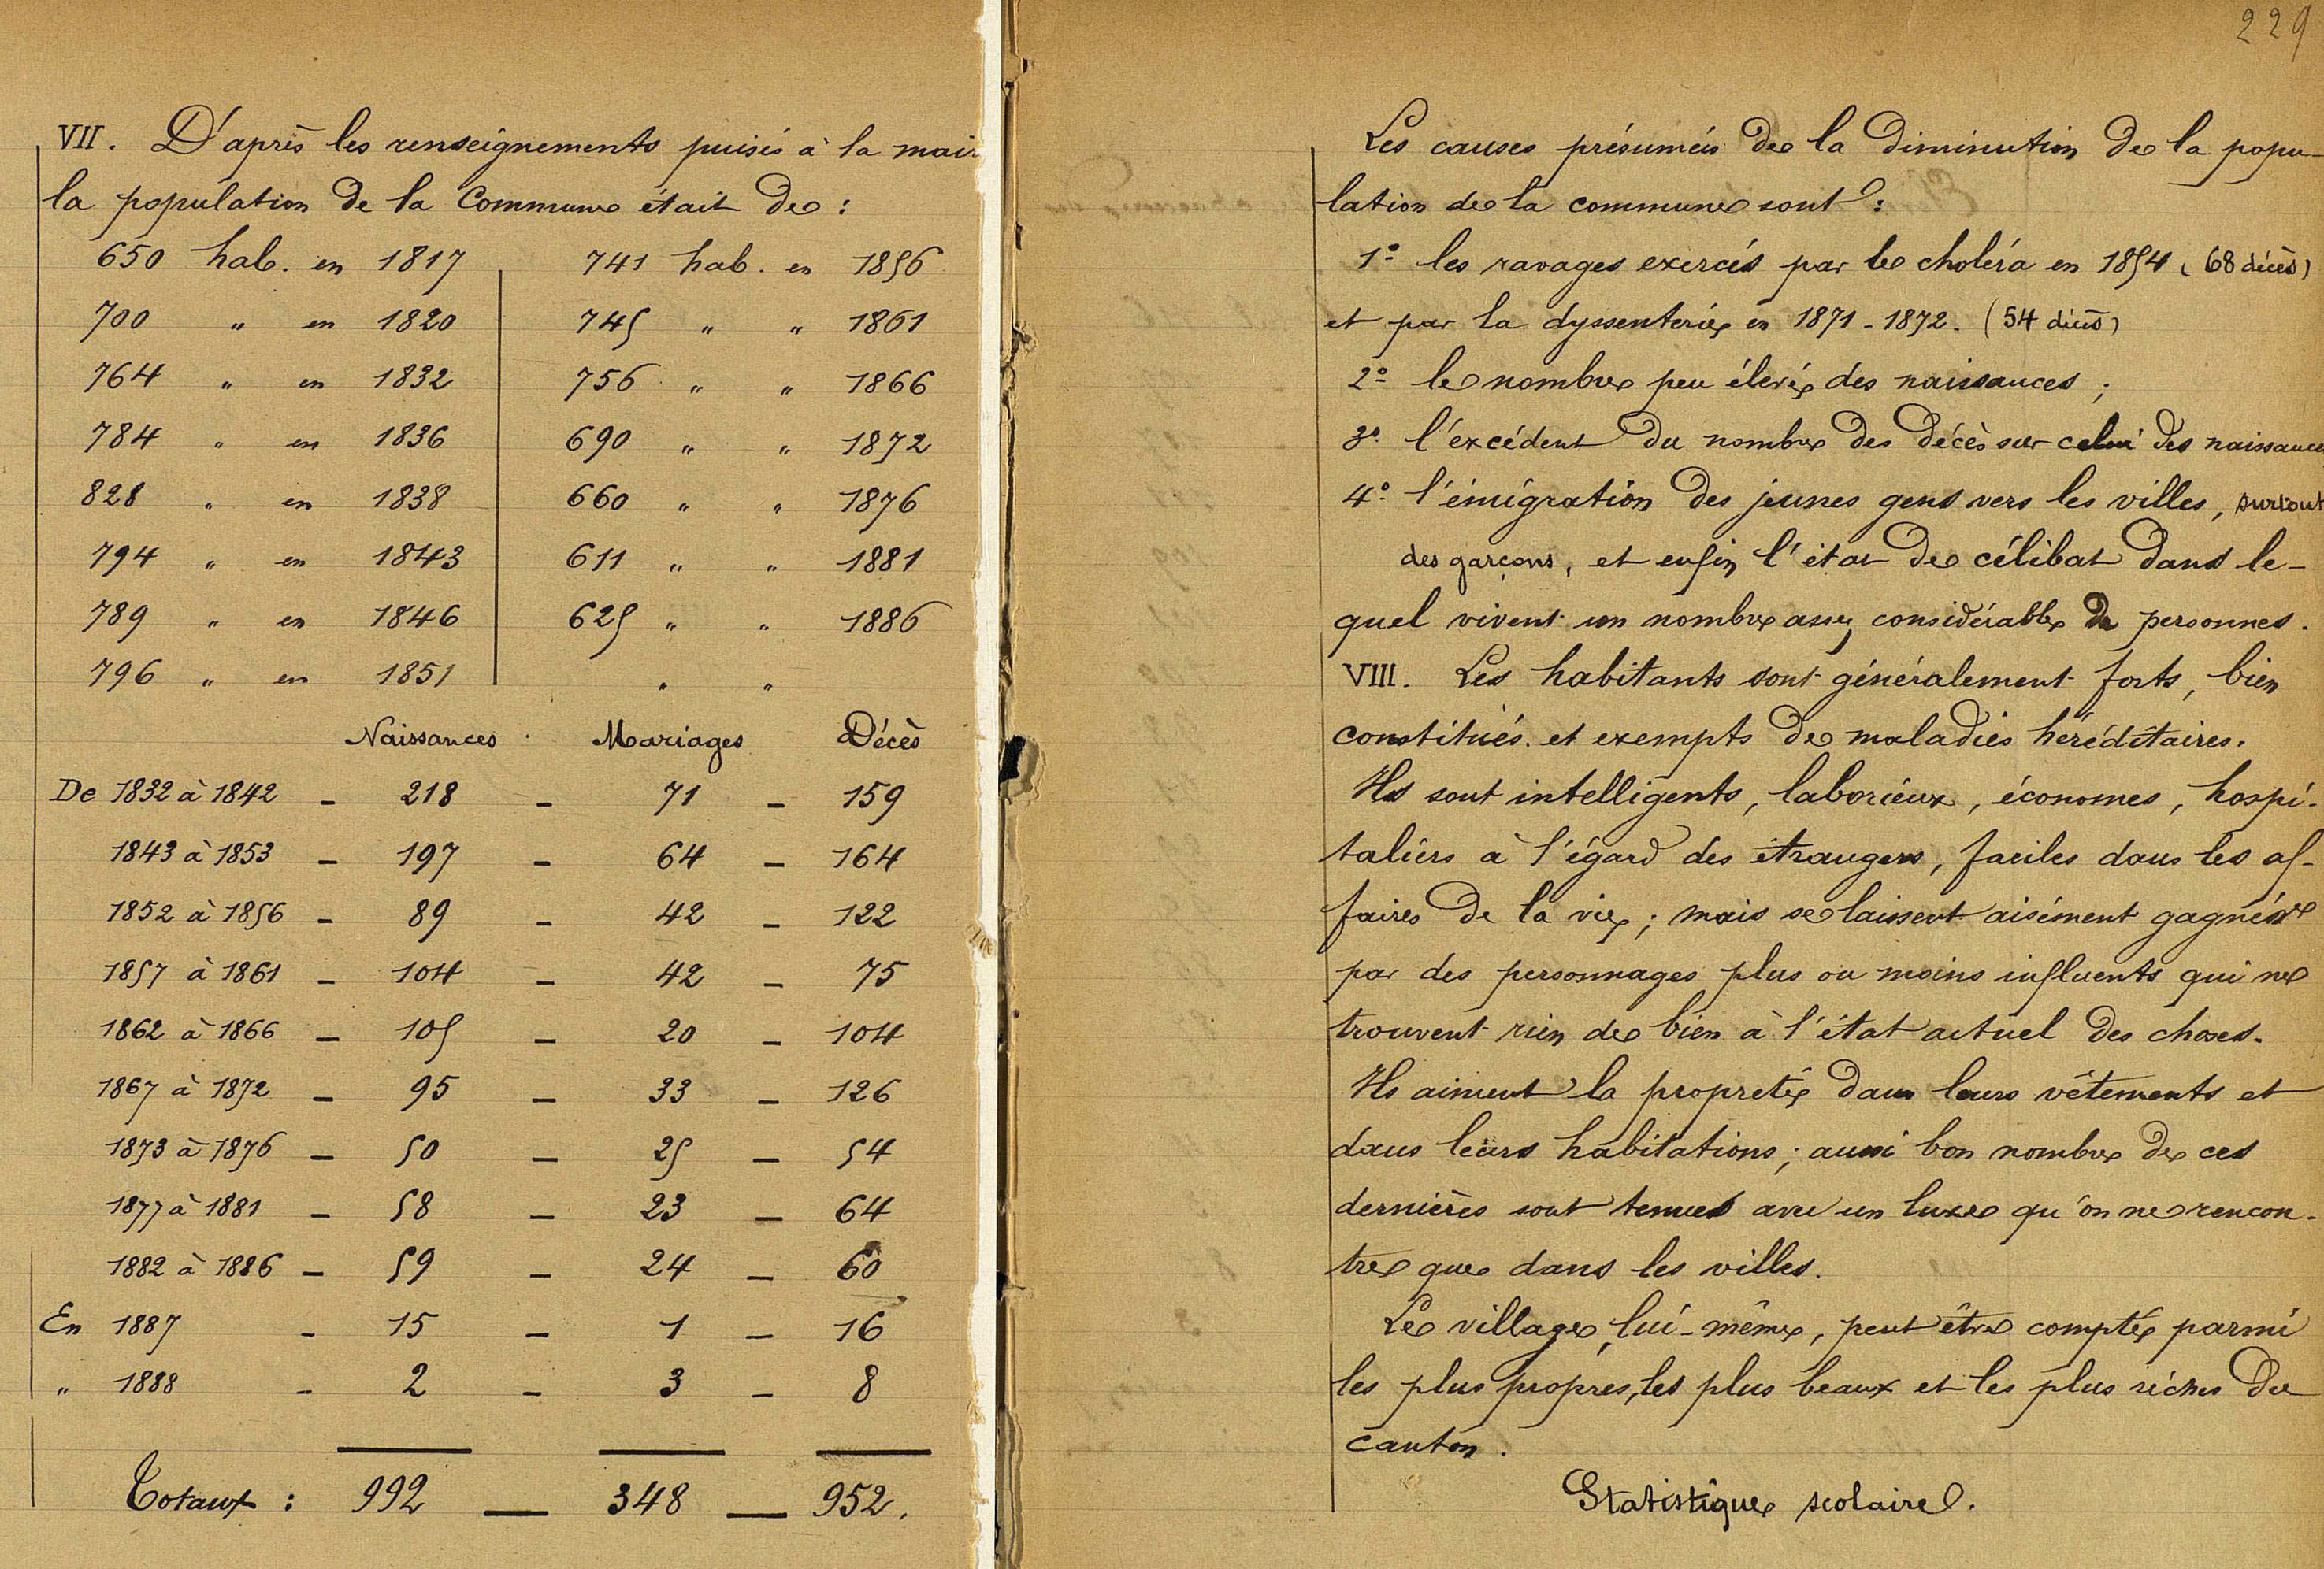 VII. D'après les renseignements puisés à la mair
la population de la Commune était de :
650 hab. en 1817 741 hab. en 1856
700 " en 1820 745 " " 1861
764 " en 1832 756 " " 1866
784 " en 1836 690 " " 1872
828 " en 1838 660 " " 1876
794 " en 1843 611 " " 1881
789 " en 1846 625 " " 1886
796 " en 1851 " "
Naissances Mariages Décès
De 1832 à 1842 – 218 – 71 – 159
1843 à 1853 – 197 – 64 – 164
1852 à 1856 – 89 – 42 – 122
1857 à 1861 – 104 – 42 – 75
1862 à 1866 – 105 – 20 – 104
1867 à 1872 – 95 – 33 – 126
1873 à 1876 – 50 – 25 – 54
1877 à 1881 – 58 – 23 – 64
1882 à 1886 – 59 – 24 – 60
En 1887 – 15 – 1 – 16
" 1888 – 2 – 3 – 8
Totaux : 992 — 348 — 952.
229
Les causes présumées de la diminution de la popu-
lation de la commune sont :
1º les ravages exercés par le choléra en 1854 (68 décès)
et par la dyssenterie en 1871-1872. (54 décès)
2º le nombre peu élevé des naissances ;
3º l'excédent du nombre des décès sur celui des naissances
4º l'émigration des jeunes gens vers les villes, surtout
des garçons, et enfin l'état de célibat dans le-
quel vivent un nombre assez considérable de personnes.
VIII. Les habitants sont généralement forts, bien
constitués et exempts de maladies héréditaires.
Ils sont intelligents, laborieux, économes, hospi-
taliers à l'égard des étrangers, faciles dans les af-
faires de la vie ; mais se laissent aisément gagner
par des personnages plus ou moins influents qui ne
trouvent rien de bien à l'état actuel des choses.
Ils aiment la propreté dans leurs vêtements et
dans leurs habitations ; aussi bon nombre de ces
dernières sont tenues avec un luxe qu'on ne rencon-
tre que dans les villes.
Le village, lui-même, peut être compté parmi
les plus propres, les plus beaux et les plus riches du
canton.
Statistique scolaire.